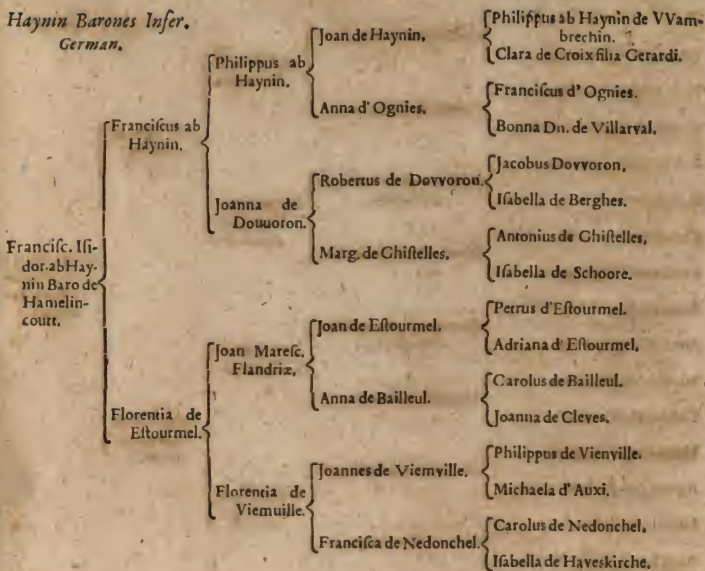 Haynin Barones Infer.
German.
Francisc. Isi-
dor. ab Hay-
nin Baro de
Hamelin-
court.
Franciscus ab
Haynin.
Florentia de
Estourmel.
Philippus ab
Haynin.
Joanna de
Douuoron.
Joan Maresc.
Flandriæ.
Florentia de
Viemuille.
Joan de Haynin.
Anna d'Ognies.
Robertus de Dovvoron.
Marg. de Ghistelles.
Joan de Estourmel.
Anna de Bailleul.
Joannes de Viemville.
Francisca de Nedonchel.
Philippus ab Haynin de VVam-
brechin.
Clara de Croix filia Gerardi.
Franciscus d'Ognies.
Bonna Dn. de Villarval.
Jacobus Dovvoron.
Isabella de Berghes.
Antonius de Ghistelles.
Isabella de Schoore.
Petrus d'Estourmel.
Adriana d'Estourmel.
Carolus de Bailleul.
Joanna de Cleves.
Philippus de Vienville.
Michaela d'Auxi.
Carolus de Nedonchel.
Isabella de Haveskirche.